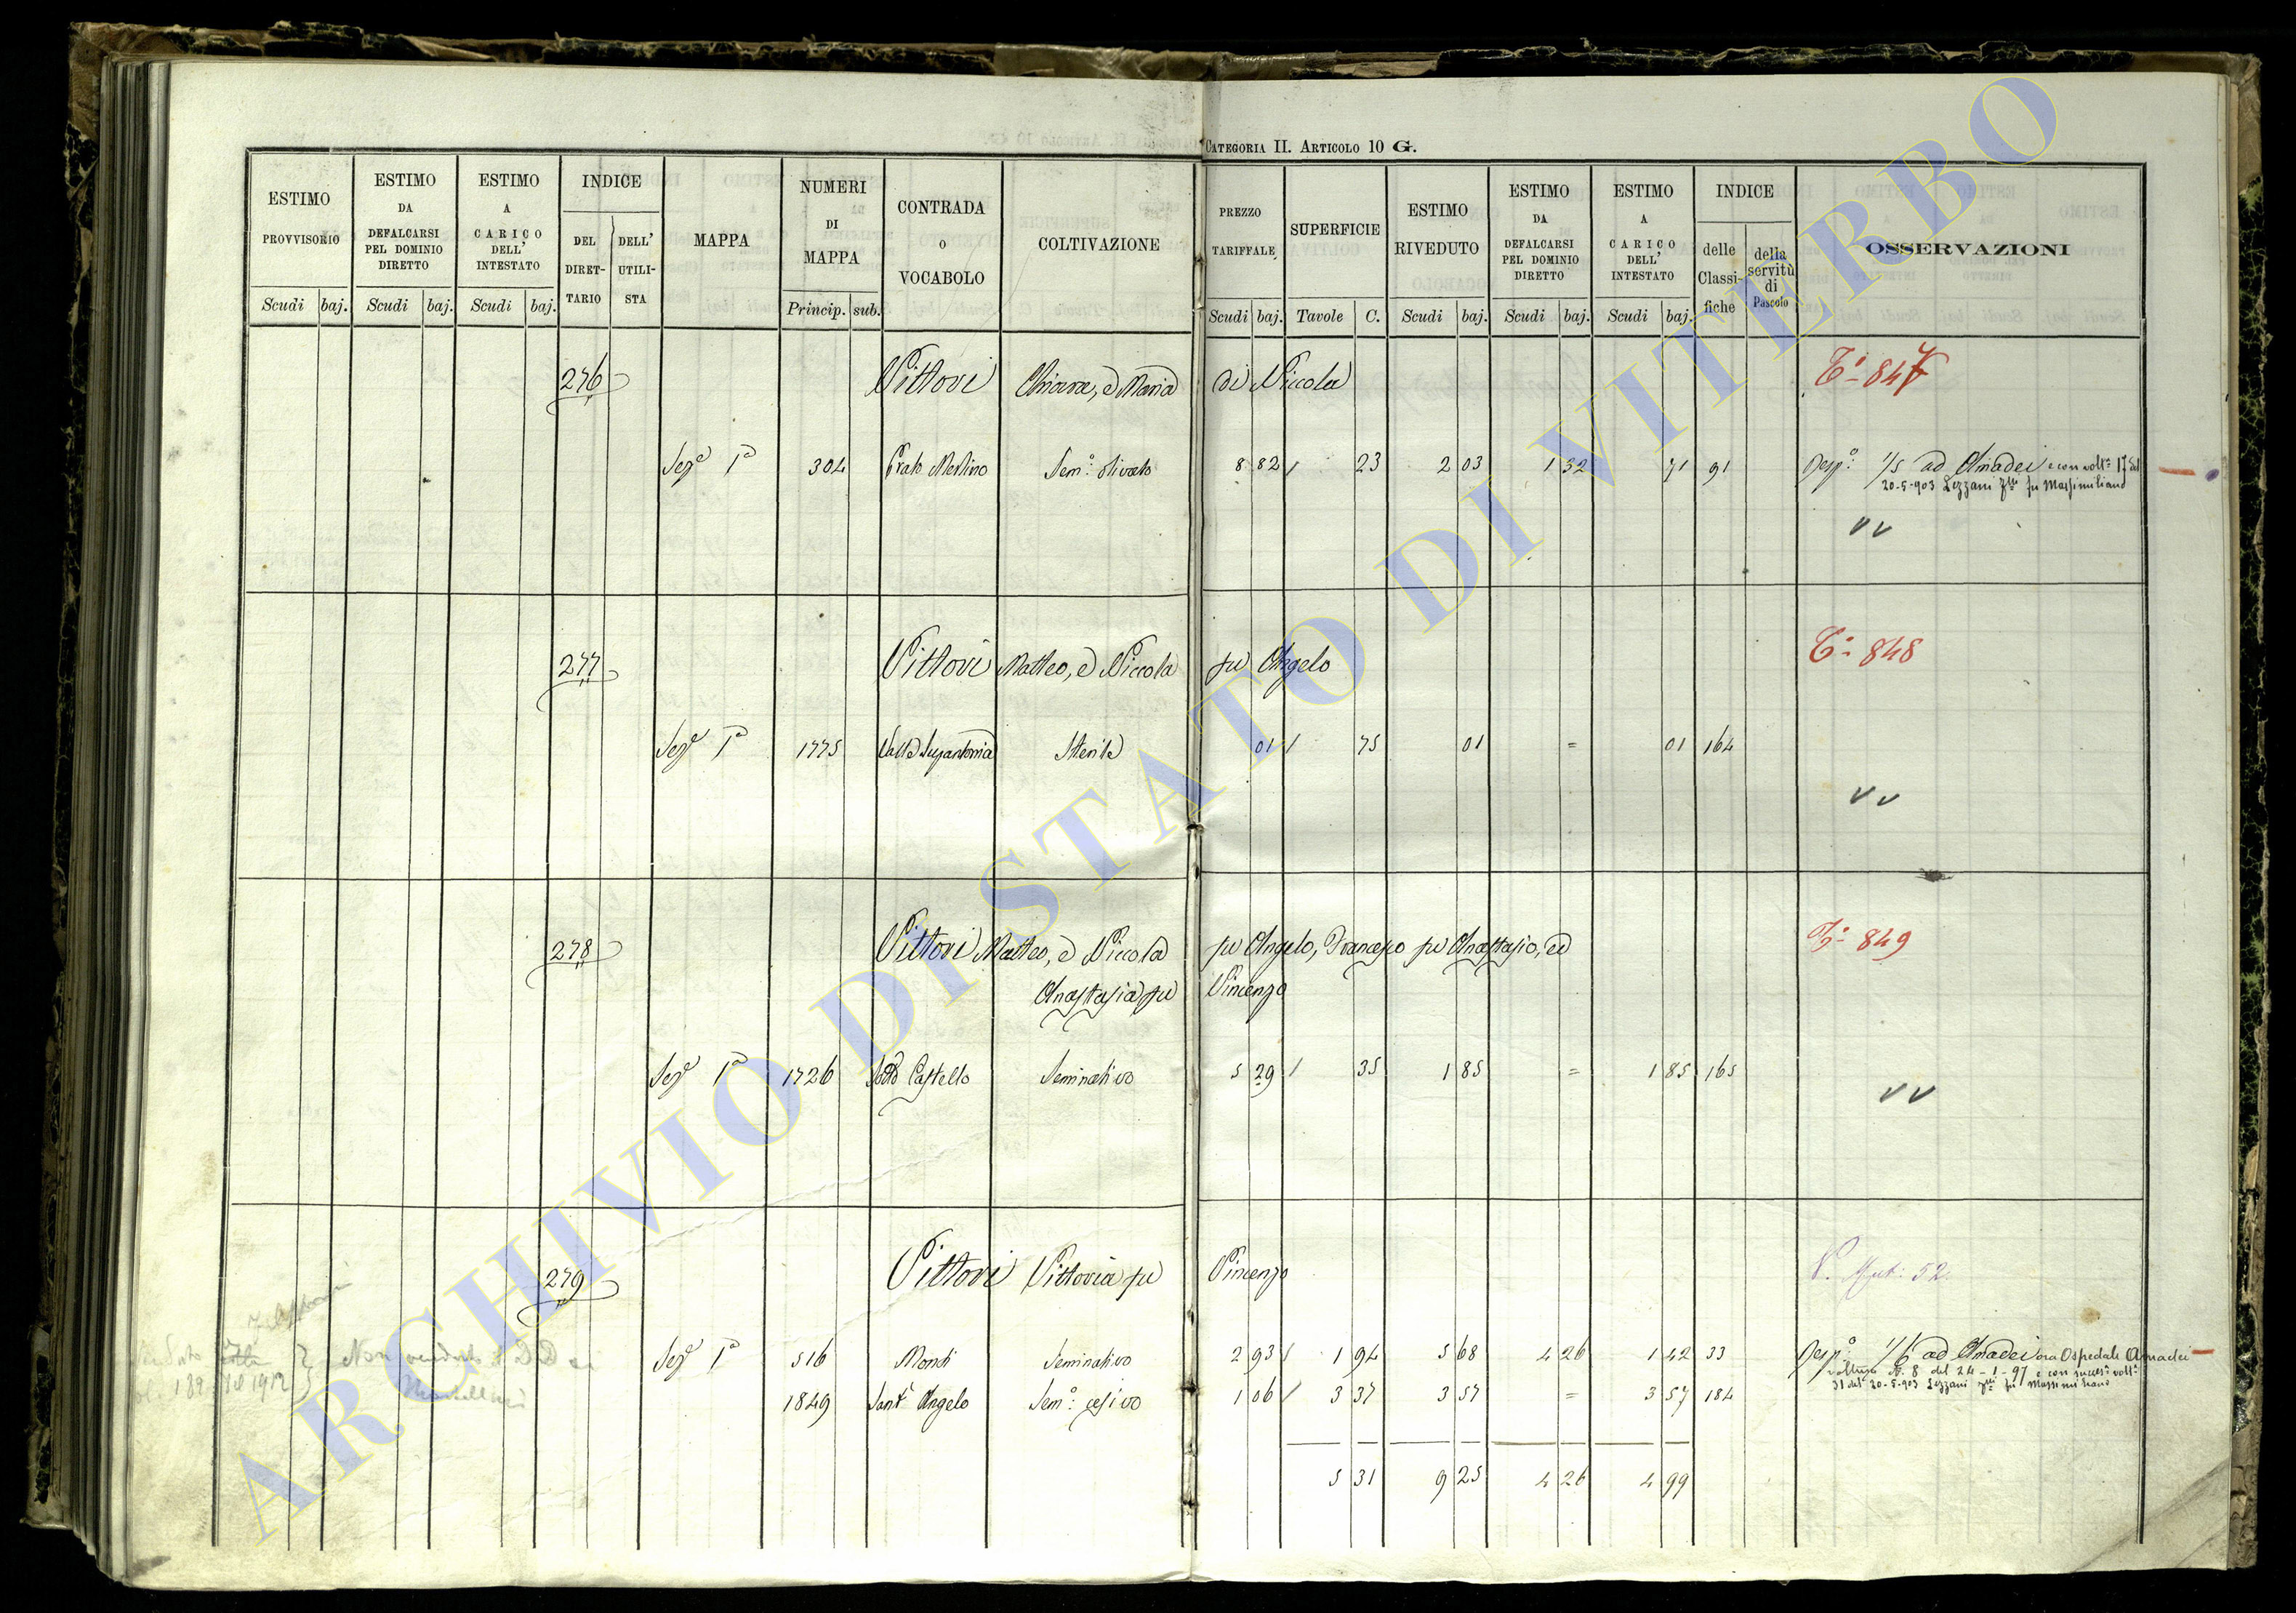 CATEGORIA II. ARTICOLO 10 G.
ESTIMO PROVVISORIO
ESTIMO DA DEFALCARSI PEL DOMINIO DIRETTO
ESTIMO A CARICO DELL' INTESTATO
INDICE
DEL DIRETTARIO
DELL' UTILISTA
MAPPA
NUMERI DI MAPPA
CONTRADA O VOCABOLO
COLTIVAZIONE
PREZZO TARIFFALE
SUPERFICIE
ESTIMO RIVEDUTO
ESTIMO DA DEFALCARSI PEL DOMINIO DIRETTO
ESTIMO A CARICO DELL' INTESTATO
INDICE
delle Classifiche
della servitù di Pascolo
OSSERVAZIONI
Scudi baj. Scudi baj. Scudi baj. Princip. sub. Scudi baj. Tavole C. Scudi baj. Scudi baj. Scudi baj.
276 Vittori Chiara, e Maria di Niccola 847
Sez.e 1a 304 Prato Merlino Sem.o olivato 8 82 / 23 2 03 1 32 71 91 Resp.o 1/5 ad Amadei e con volt.a 17 del
20-5-903 Lezzani fu Massimiliano
VV
277 Vittori Matteo, e Niccola fu Angelo 848
Sez.e 1a 1775 Sterile 01 / 75 01 = 01 164
VV
278 Vittori Matteo, e Niccola fu Angelo, Francesco fu Anastasio, ed 849
Anastasia fu Vincenzo
Sez.e 1a 1726 Sotto Castello Seminativo 5 29 / 35 1 85 = 1 85 165
VV
279 Vittori Vittoria fu Vincenzo 52
Sez.e 1a 516 Monti Seminativo 2 93 / 1 94 5 68 4 26 1 42 33 Resp.o 1/6 ad Amadei ora Ospedale Amadei
voltura N. 8 del 24-1-97 e con succes.a volt.a
31 del 20-5-903 Lezzani fu Massimiliano
1849 Sant' Angelo Sem.o cesivo 1 06 / 3 37 3 57 = 3 57 184
5 31 9 25 4 26 4 99
189 del 1912
ARCHIVIO DI STATO DI VITERBO